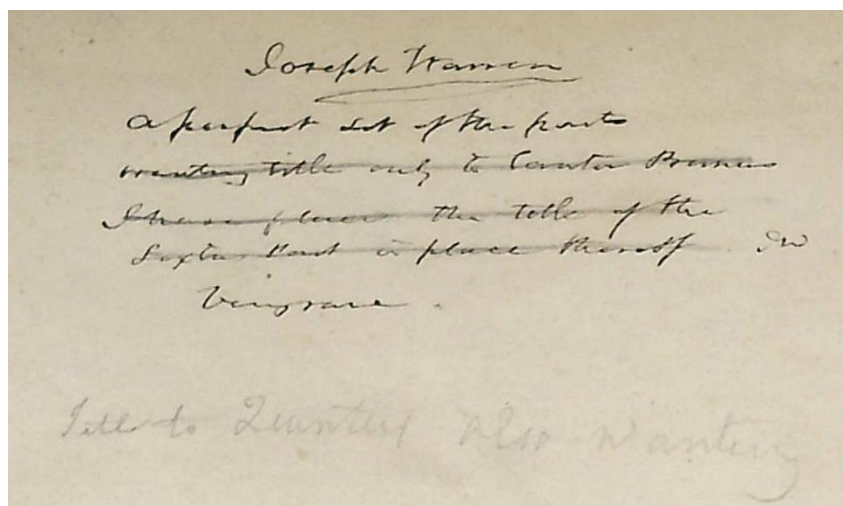 Joseph Warren
A perfect set of the parts
wanting title only to Cantus Primus
I have placed the title of the
Sextus Part in place thereof JW
Very rare.
Title to Quintus Also Wanting